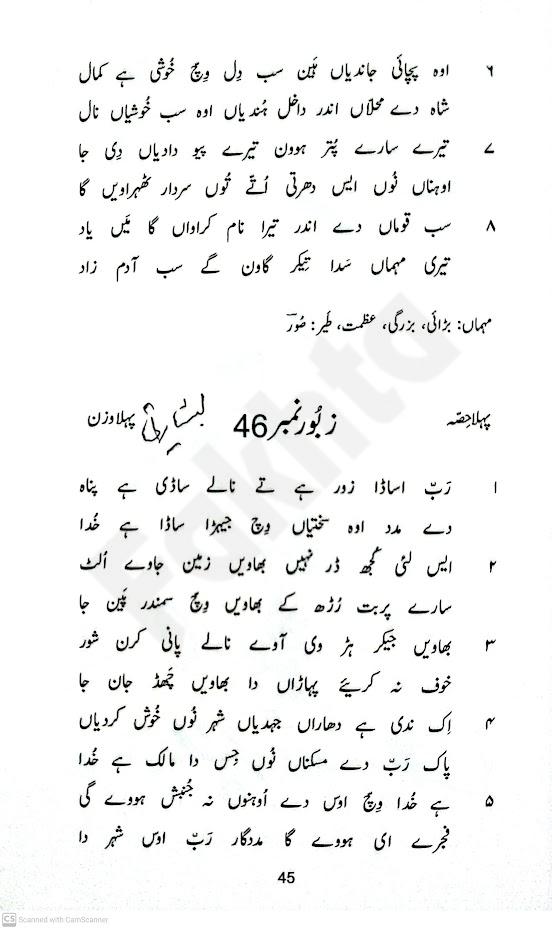 ۶ اوہ پچائی جاندیاں ہَین سب دِل وِچ خُوشی ہے کمال
شاہ دے محلاں اندر داخل ہُندیاں اوہ سب خُوشیاں نال
۷ تیرے سارے پُتر ہوون تیرے پیو دادیاں دِی جا
اوہناں نُوں ایس دھرتی اُتے تُوں سردار ٹھہراویں گا
۸ سب قوماں دے اندر تیرا نام کراواں گا مَیں یاد
تیری مہماں سَدا تِیکر گاون گے سب آدم زاد
مہماں: بڑائی، بزرگی، عظمت، طَیر: صُور
پہلا حِصّہ زبُور نمبر 46 پہلا وزن
۱ رَبّ اساڈا زور ہے تے نالے ساڈی ہے پناہ
دے مدد اوہ سختیاں وِچ جیہڑا ساڈا ہے خُدا
۲ ایس لئی کُجھ ڈر نہیں بھاویں زمین جاوے اُلٹ
سارے پربت رُڑھ کے بھاویں وِچ سمندر پَین جا
۳ بھاویں جیکر ہڑ وی آوے نالے پانی کرن شور
خوف نہ کریئے پہاڑاں دا بھاویں چَھڈ جان جا
۴ اِک ندی ہے دھاراں جہدیاں شہر نُوں خُوش کردیاں
پاک رَبّ دے مسکناں نُوں جِس دا مالک ہے خُدا
۵ ہے خُدا وِچ اوس دے اُوہنوں نہ جُنبش ہووے گی
فجرے ای ہووے گا مددگار رَبّ اوس شہر دا
45
Fakhta
CS Scanned with CamScanner